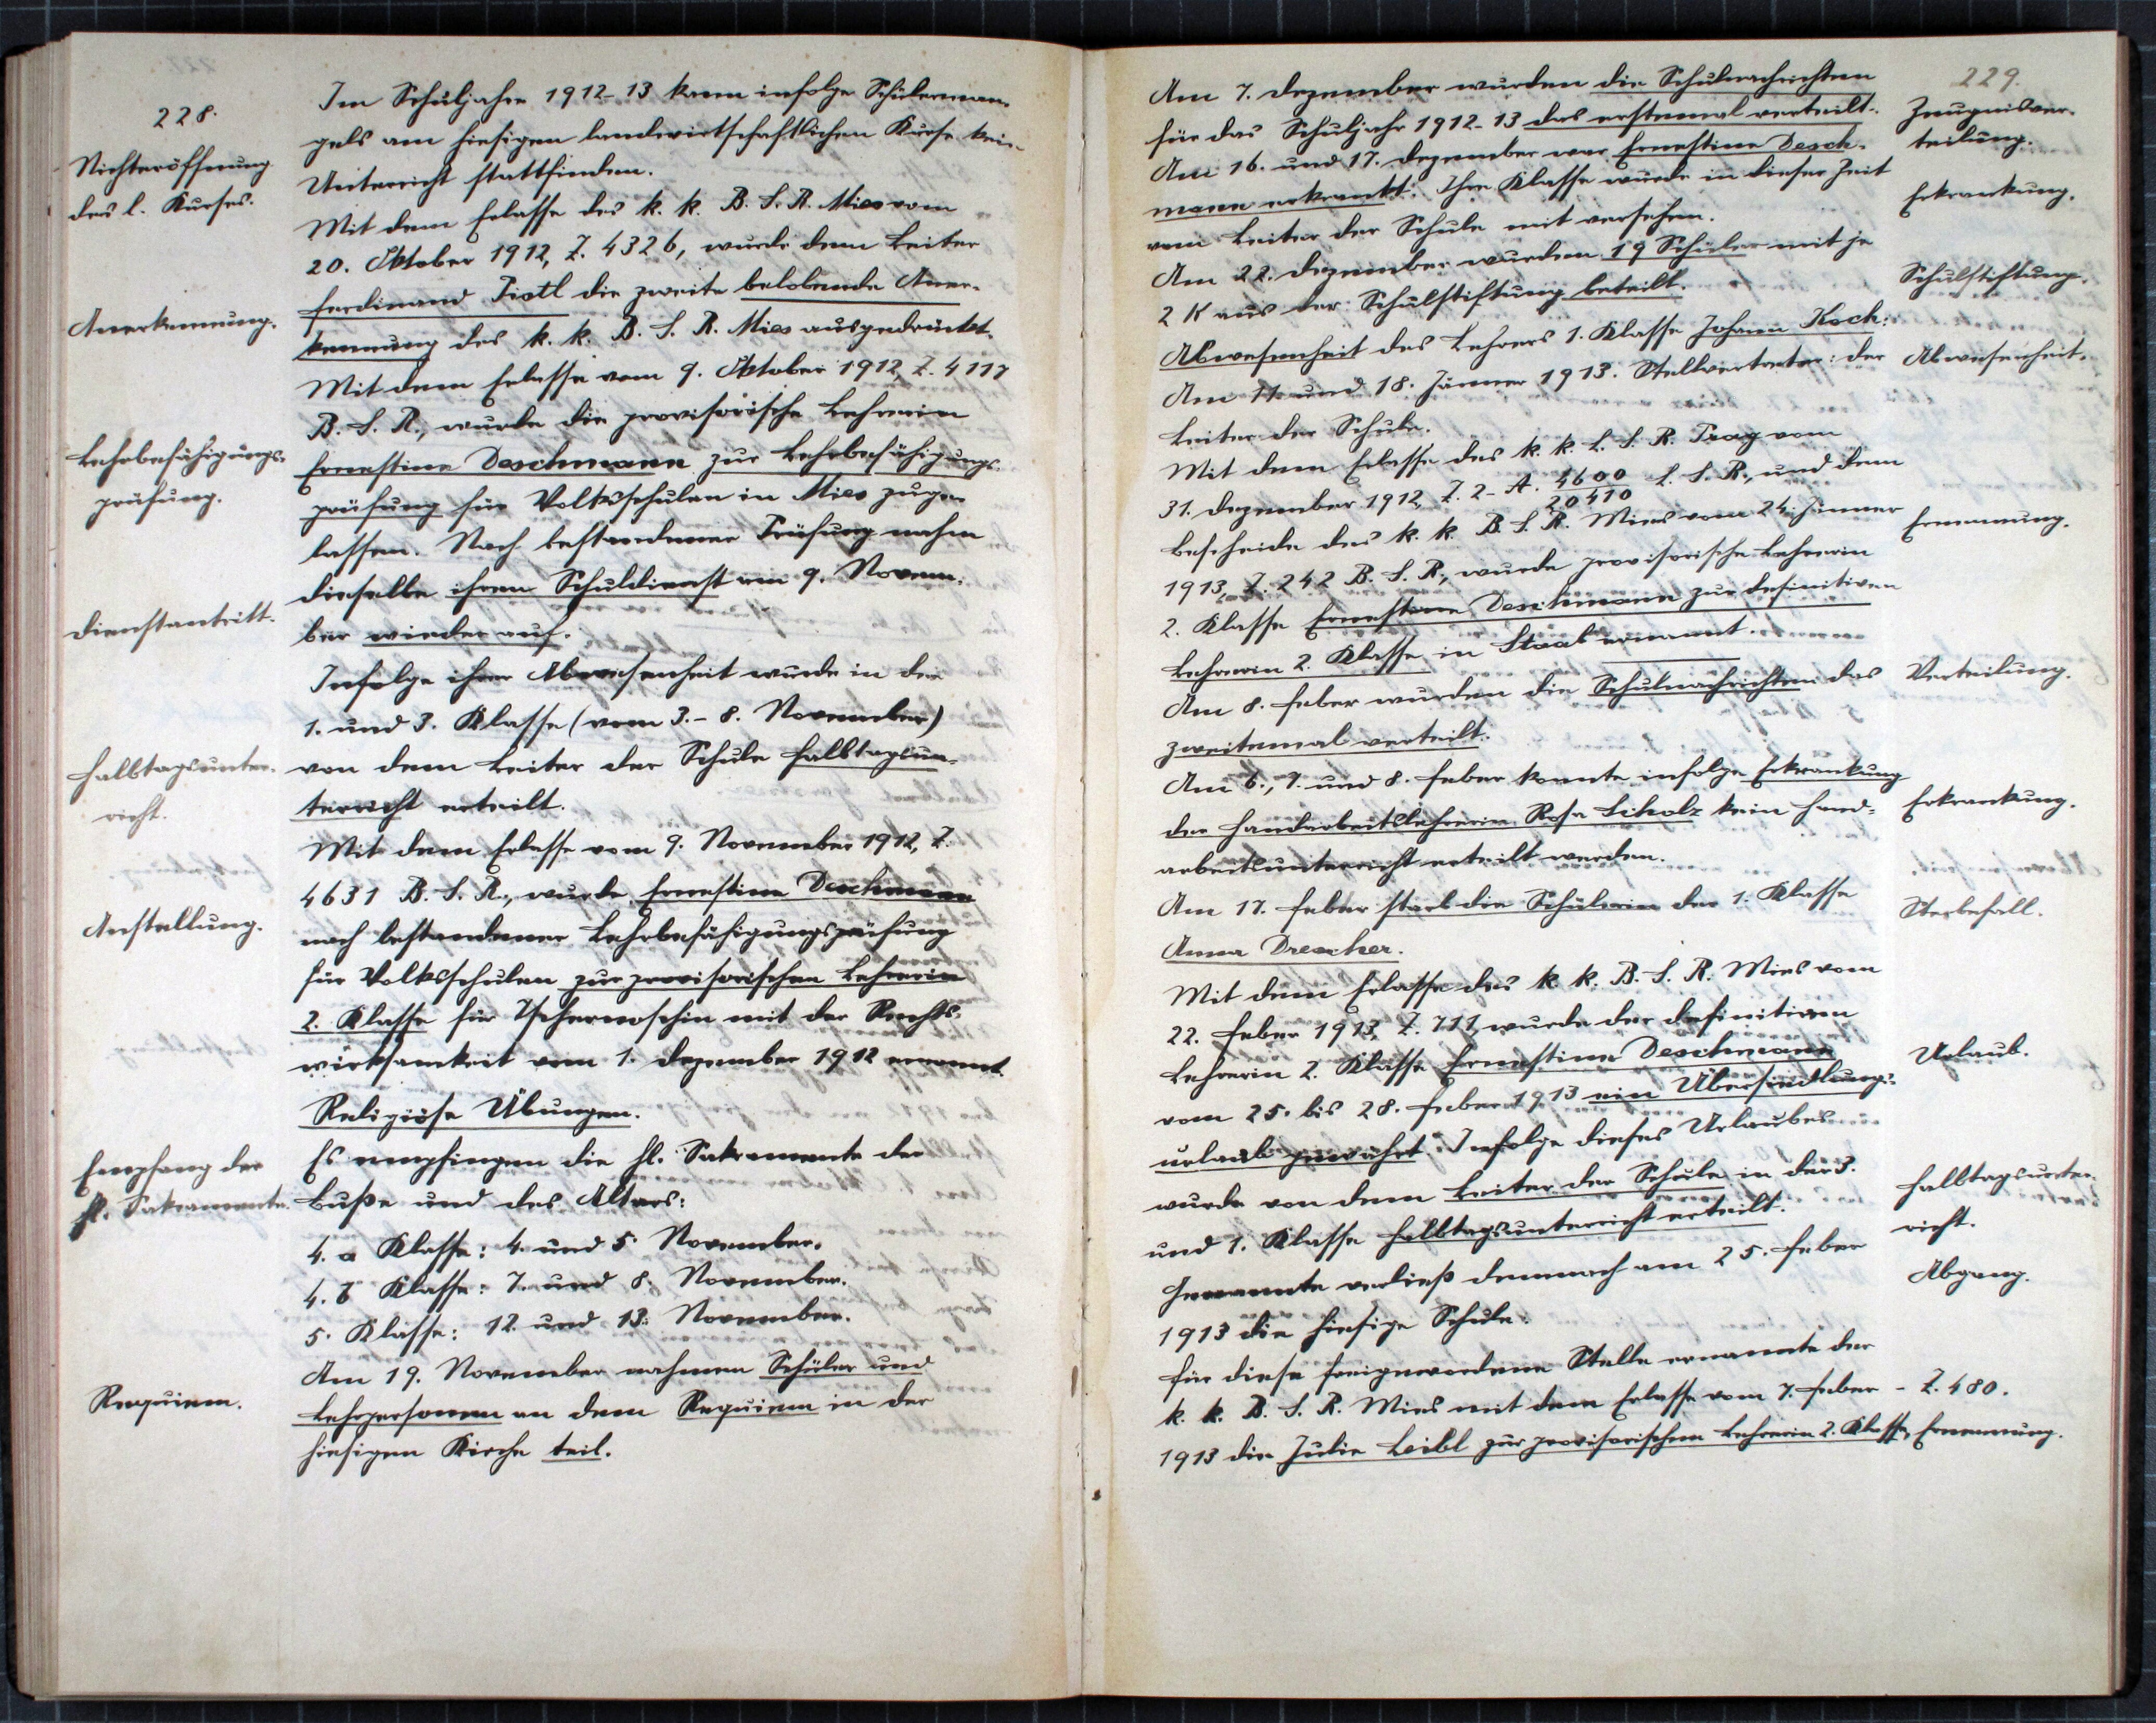 228.
Nichteröffnung
des l. Kurses.
Im Schuljahre 1912-13 kann infolge Schülerman-
gels am hiesigen landwirtschaftlichen Kurse kein
Unterricht stattfinden.
Mit dem Erlasse des k. k. B. S. R. Mies vom
20. Oktober 1912, Z. 4326, wurde dem Leiter
Anerkennung.
Ferdinand Pistl die zweite belobende Aner-
kennung des k. k. B. S. R. Mies ausgedrückt.
Mit dem Erlasse vom 9. Oktober 1912, Z. 4117
B. S. R., wurde die provisorische Lehrerin
Lehrbefähigungs-
prüfung.
Ernestine Deschmann zur Lehrbefähigungs-
prüfung für Volksschulen in Mies zuge-
lassen. Nach bestandener Prüfung nahm
dieselbe ihren Schuldienst am 9. Novem-
Dienstantritt.
ber wieder auf.
Infolge ihrer Abwesenheit wurde in der
1. und 3. Klasse (vom 3.- 8. November)
Halbtagsunter-
richt.
von dem Leiter der Schule Halbtagsun-
terricht erteilt.
Mit dem Erlasse vom 9. November 1912, Z.
4631 B. S. R., wurde Ernestine Deschmann
Anstellung.
nach bestandener Lehrbefähigungsprüfung
für Volksschulen zur provisorischen Lehrerin
2. Klasse für Tschernoschin mit der Rechts-
wirksamkeit vom 1. Dezember 1912 ernannt.
Religiöse Übungen.
Empfang der
hl. Sakramente.
Es empfingen die hl. Sakramente der
Buße und des Altars:
4. a Klasse: 4. und 5. November.
4. b Klasse: 7. und 8. November.
5. Klasse: 12. und 13. November.
Am 19. November nahmen Schüler und
Requiem.
Lehrpersonen an dem Requiem in der
hiesigen Kirche teil.
229.
Am 7. Dezember wurden die Schulnachrichten
Zeugnisver-
teilung.
für das Schuljahr 1912-13 das erstemal verteilt.
Am 16. und 17. Dezember war Ernestine Desch-
mann erkrankt. Ihre Klasse wurde in dieser Zeit
Erkrankung.
vom Leiter der Schule mit versehen.
Am 22. Dezember wurden 19 Schüler mit je
Schulstiftung.
2 K aus der Schulstiftung beteilt.
Abwesenheit des Lehrers 1. Klasse Johann Koch:
Abwesenheit.
Am 11. und 18. Jänner 1913. Stellvertreter: der
Leiter der Schule.
Mit dem Erlasse des k. k. L. S. R. Prag vom
31. Dezember 1912, Z. 2- A. 4600/20410 L. S. R., und dem
Ernennung.
Bescheide des k. k. B. S. R. Mies vom 24. Jänner
1913, Z. 242 B. S. R., wurde provisorische Lehrerin
2. Klasse Ernestine Deschmann zur definitiven
Lehrerin 2. Klasse in Staab ernannt.
Am 8. Feber wurden die Schulnachrichten das
Verteilung.
zweitemal verteilt.
Am 6., 7. und 8. Feber konnte infolge Erkrankung
Erkrankung.
der Handarbeitslehrerin Rosa Scholz kein Hand-
arbeitsunterricht erteilt werden.
Am 17. Feber starb die Schülerin der 1. Klasse
Sterbefall.
Anna Drescher.
Mit dem Erlasse des k. k. B. S. R. Mies vom
22. Feber 1913, Z. 711, wurde der definitiven
Lehrerin 2. Klasse Ernestine Deschmann
Urlaub.
vom 25. bis 28. Feber 1913 ein Übersiedlungs-
urlaub gewährt. Infolge dieses Urlaubes
wurde von dem Leiter der Schule in der 3.
Halbtagsunter-
richt.
und 1. Klasse Halbtagsunterricht erteilt.
Genannte verließ demnach am 25. Feber
Abgang.
1913 die hiesige Schule.
Für diese freigewordene Stelle ernannte der
k. k. B. S. R. Mies mit dem Erlasse vom 7. Feber - Z. 480.
1913 die Julie Leibl zur provisorischen Lehrerin 2. Klasse, Ernennung.